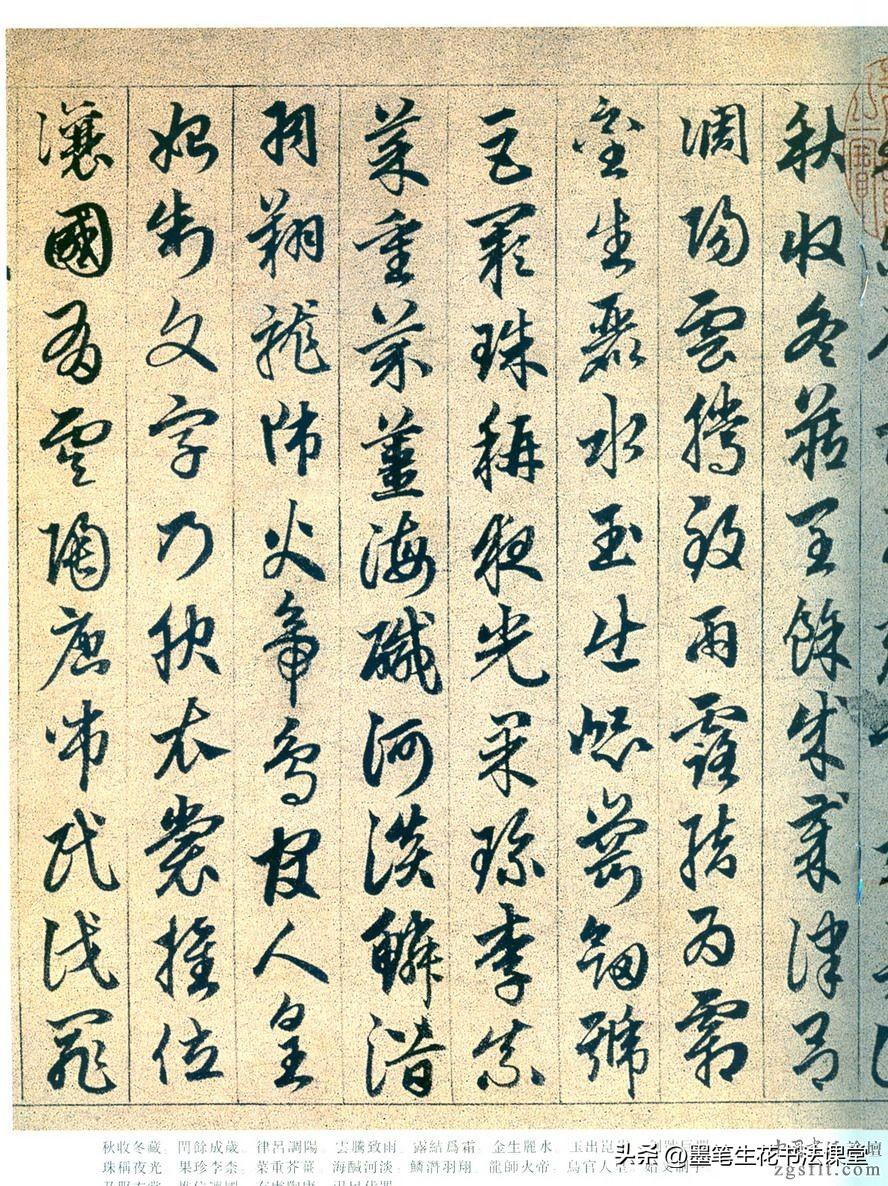 秋收冬藏閏餘成歲律呂
調陽雲騰致雨露結為霜
金生麗水玉出崑岡劍號
巨闕珠稱夜光果珍李柰
菜重芥薑海鹹河淡鱗潛
羽翔龍師火帝鳥官人皇
始制文字乃服衣裳推位
讓國有虞陶唐弔民伐罪
秋收冬藏。閏餘成歲。律呂調陽。雲騰致雨。露結爲霜。金生麗水。玉出崑
珠稱夜光。果珍李柰。菜重芥薑。海鹹河淡。鱗潛羽翔。龍師火帝。鳥官人
头条 @墨笔生花书法课堂